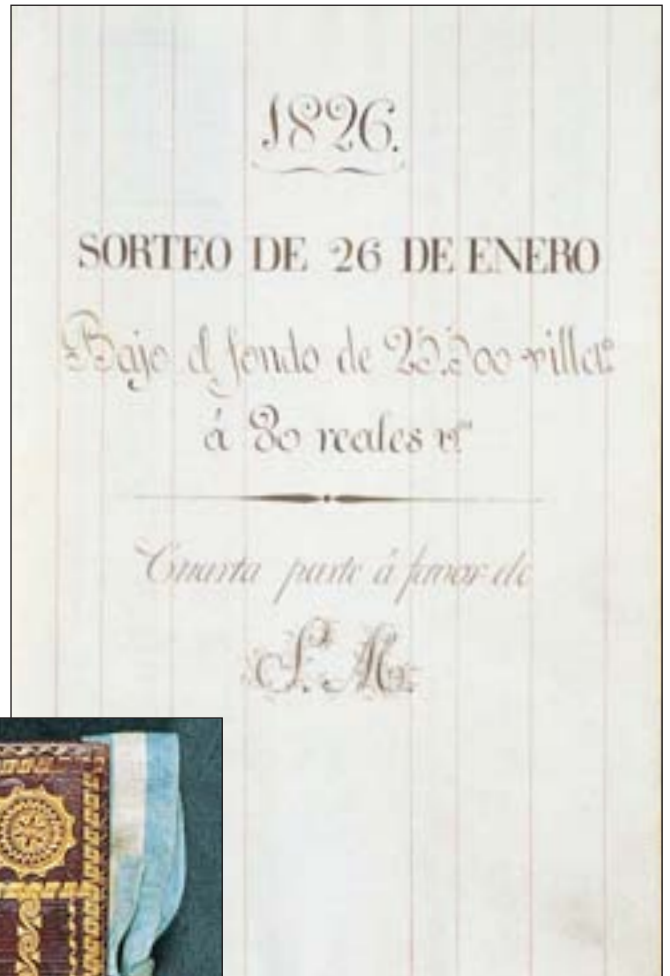 1826.
SORTEO DE 26 DE ENERO
Bajo el fondo de villets
á 80 reales vn
Cuarta parte á favor de
S. M.